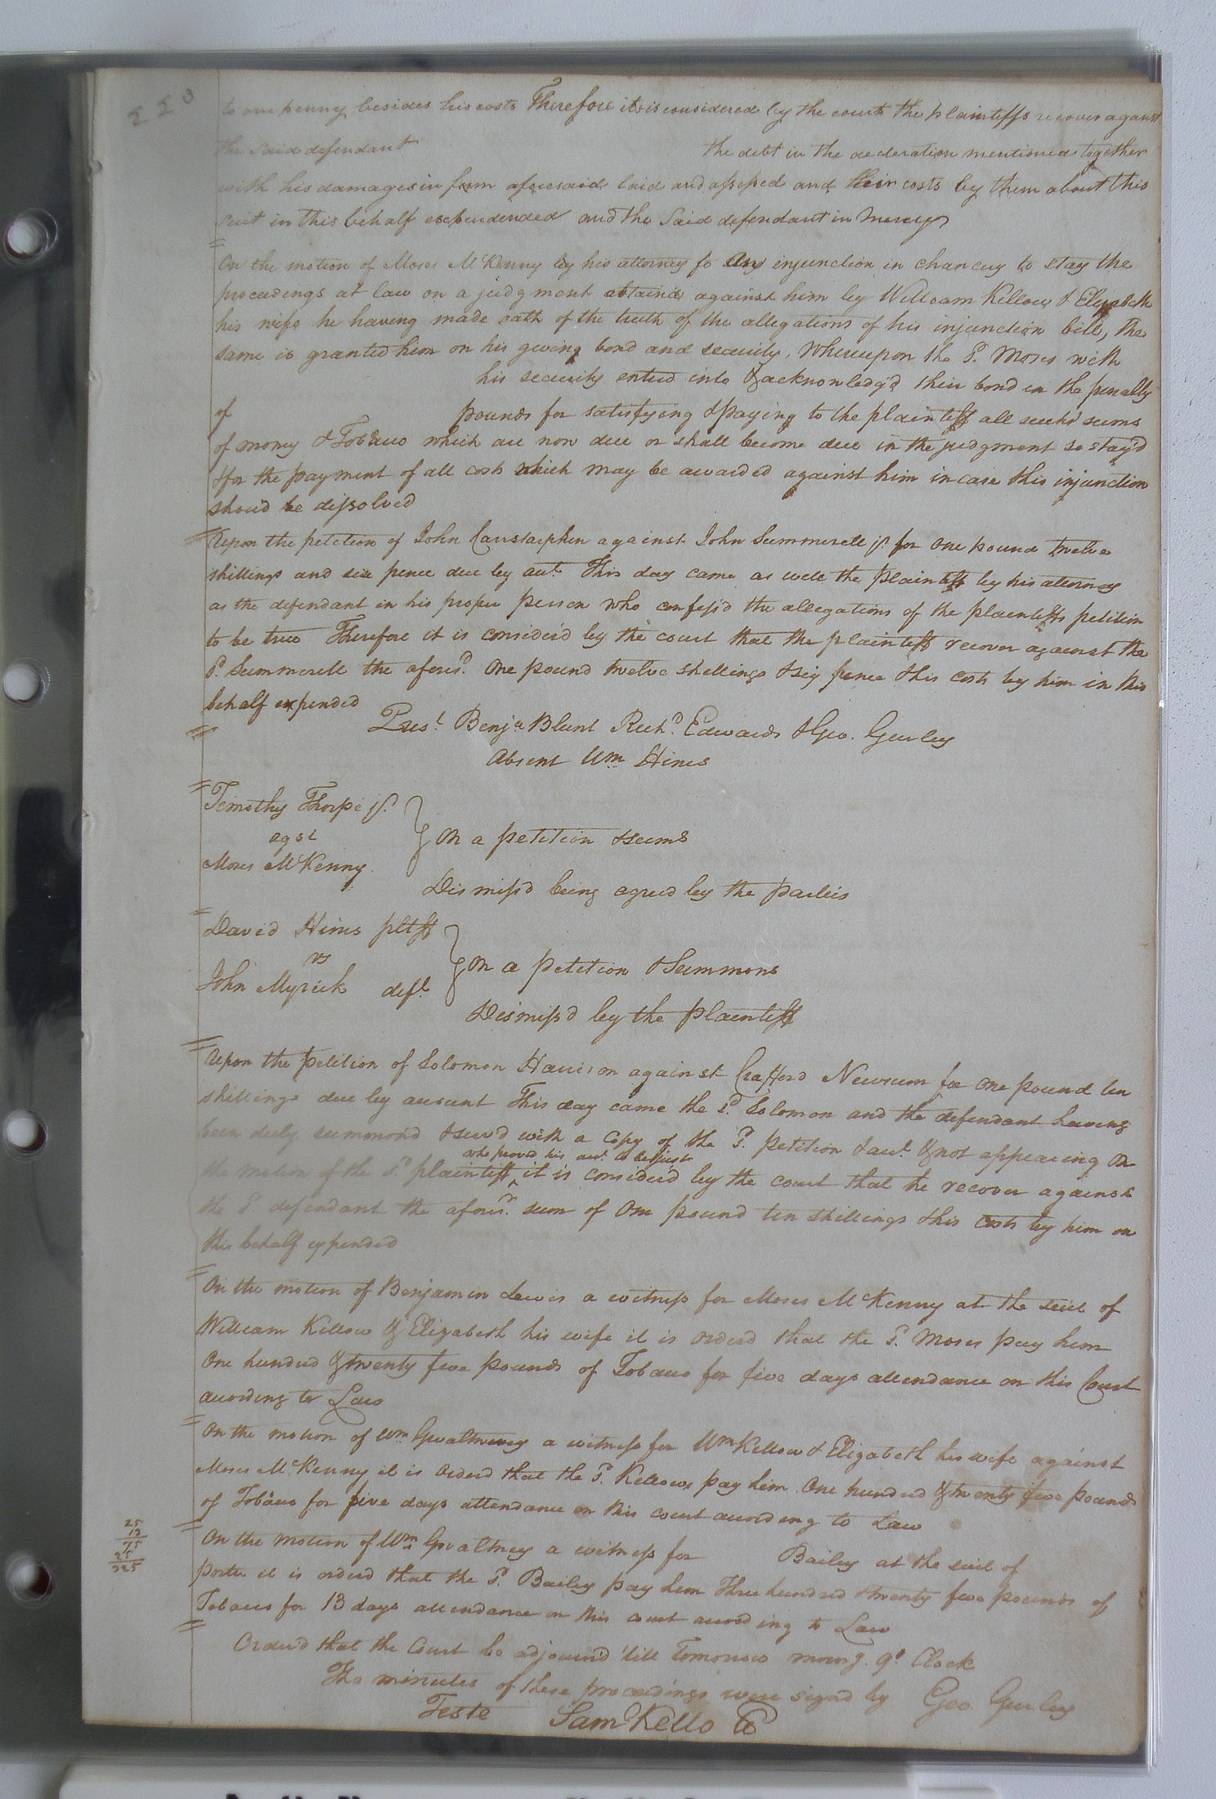 to one penny besides his costs Therefore it is considered by the court the plaintiffs recover against
the said defendant the debt in the decleration mentioned together
with his damages in form aforesaid laid and assessed and their costs by them about this
suit in this behalf expendended and the said defendant in mercy
On the motion of Moses McKenny by his attorney fo Any injunction in chancery to stay the
proceedings at law on a judgment obtained against him by William Kellow & Elizabeth
his wife he having made oath of the truth of the allegations of his injunction bill, The
same is granted him on his giveng bond and security, Whereupon the Sd. Moses with
his security entred into & acknowledg'd their bond in the penalty
of pounds for satisfying & paying to the plaintiff all such sums
of money & Tobacco which are now due or shall become due in the judgment so stay'd
& for the payment of all cost which may be awarded against him in case this injunction
should be dissolved
Upon the petition of John Carstarphen against John Summerell jr. for one pound twelve
shillings and six pence due by acct. This day came as well the plaintiff by his attorney
as the defendant in his proper person who confess'd the allegations of the plaintiffs petition
to be true Therefore it is considerd by the court that the plaintiff recover against the
Sd. Summerell the aforesd. One pound twelve shillings & six pence & his costs by him in this
behalf expended
Prest. Benja Blunt Richd. Edwards & Geo. Gurley
Absent Wm Hines
Timothy Thorpe jr.
agst
Moses McKenny
On a petition & sums
Dismiss'd being agreed by the parties
David Hines pltff
vs
John Myrick deft
On a petition & Summons
Dismiss'd by the plaintiff
Upon the petition of Solomon Harrison against Crafford Newsum for One pound ten
shillings due by account This day came the sd. Solomon and the defendant having
been duly summond & serv'd with a Copy of the Sd. petition & acct. & not appearing On
who proved his acct. to be just
the motion of the sd. plaintiff ^ it is considerd by the court that he recover against
the Sd. defendant the aforesd. sum of One pound ten shillings & his costs by him on
this behalf expended
On the motion of Benjamin Lewis a witness for Moses McKenny at the suit of
William Kellow & Elizabeth his wife it is orderd that the Sd. Moses pay him
One hundred & twenty five pounds of Tobacco for five days attendance on this Court
according to Law
On the motion of Wm Gwaltney a witness for Wm Kellow & Elizabeth his wife against
Moses McKenny it is Orderd that the Sd. Kellows pay him One hundred & twenty five pounds
of Tobacco for five days attendance on this court according to Law
25
13
75
25
325
On the motion of Wm Gwaltney a witness for Bailey at the suit of
porter it is orderd that the Sd. Bailey pay him Three hundred & twenty five pounds of
Tobacco for 13 days attendance on this court according to Law
Orderd that the Court be adjourn'd 'till Tomorrow morng. 9 o' Clock
The minutes of these proceedings were signed by Geo Gurley
Teste Saml Kello CC